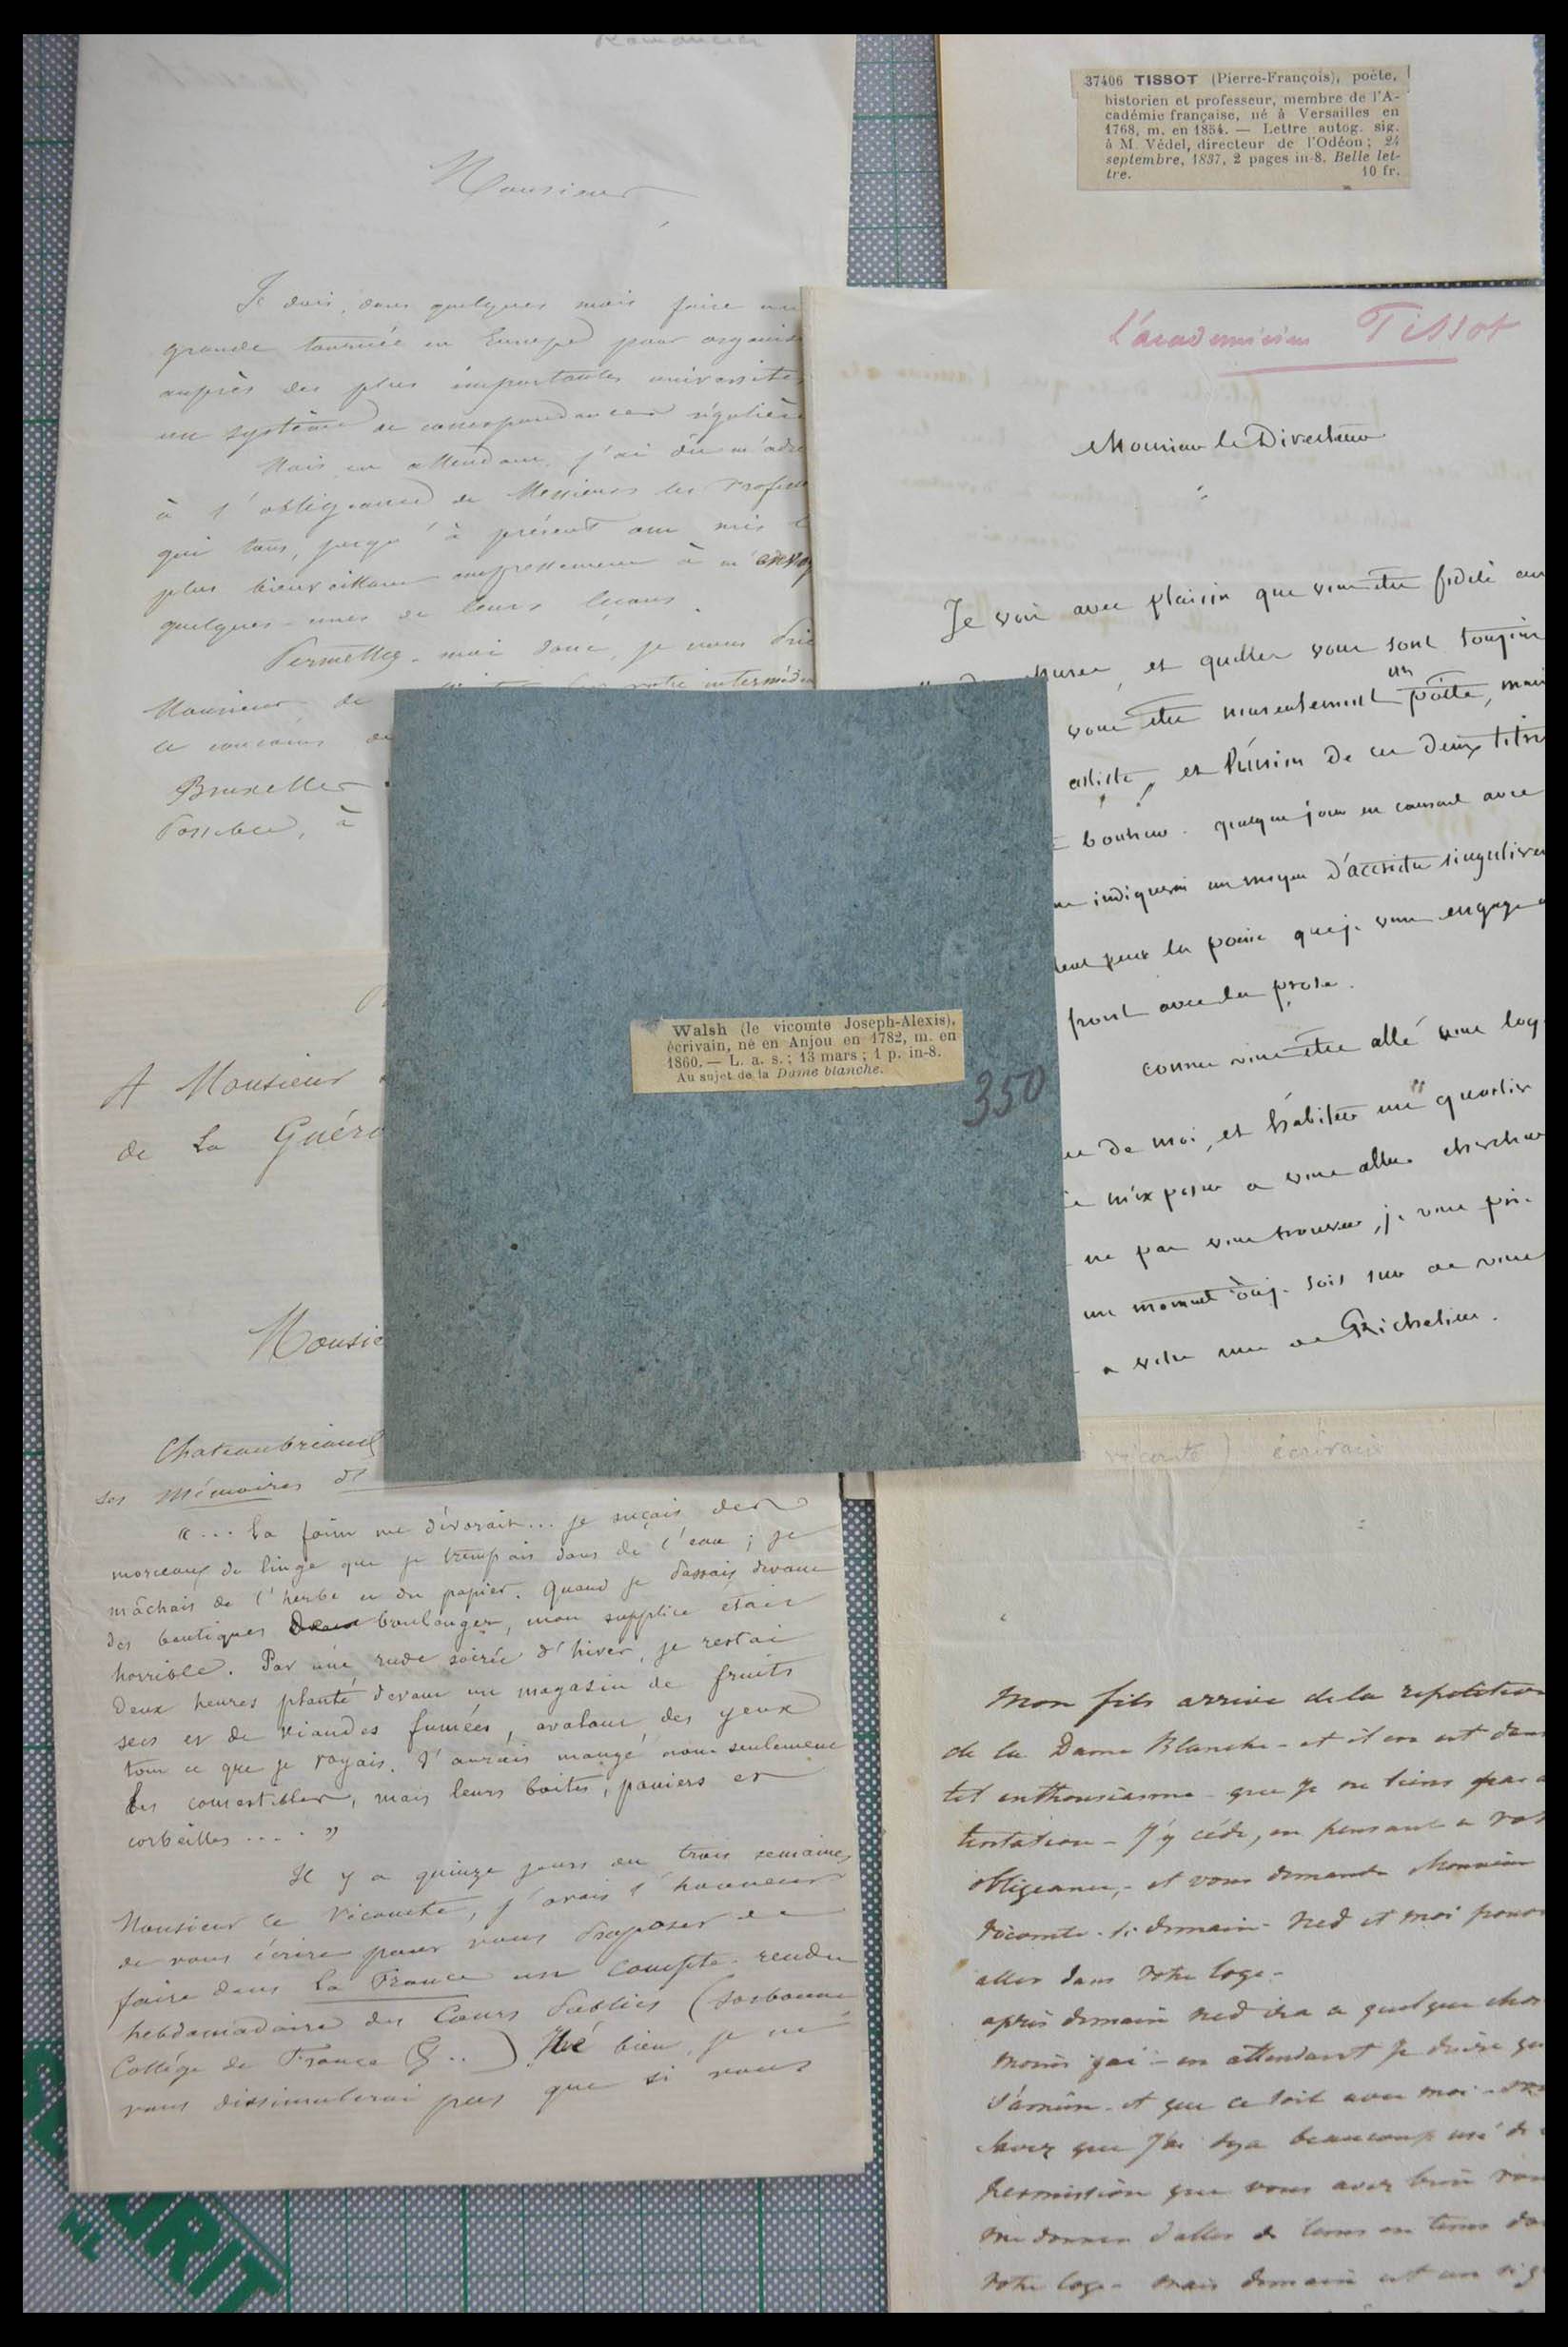 Romancier
Monsieur
Je dois, dans quelques mois faire un
grande tournée en Europe pour organis
auprès des plus importantes universités
un système de correspondances régulière
Mais en attendant, j'ai dû m'adre
à l'obligeance de Messieurs les Profess
qui tous, jusqu'à présent ont mis l
plus bienveillant empressement à m'envoy
quelques-unes de leurs leçons.
Permettez-moi donc, je vous prie
Monsieur, de votre intermédia
le concours de
Bruxelles.
Possible, à
37406 TISSOT (Pierre-François), poète,
historien et professeur, membre de l'A-
cadémie française, né à Versailles en
1768, m. en 1854. — Lettre autog. sig.
à M. Védel, directeur de l'Odéon; 24
septembre, 1837, 2 pages in-8. Belle let-
tre. 10 fr.
l'académicien Tissot
Monsieur le Directeur
Je vois avec plaisir que vous etes fidele au
muses, et quelles vous sont toujours
un
vous etes non seulement poëte, mais
artiste, et l'union de ces deux titre
bonheur. quelque jour en causant avec
indiquerai un moyen d'accroitre singulière
pour la poësie que je vous engage a
front avec la prose.
comme vous etes allé vous log
de moi, et habiter un quartier
m'exposer a vous aller chercher
ne pas vous trouver, je vous prie
un moment où je sois sur de vous
a votre rue de Richelieu.
Walsh (le vicomte Joseph-Alexis),
écrivain, né en Anjou en 1782, m. en
1860. — L. a. s.; 13 mars; 1 p. in-8.
Au sujet de la Dame blanche.
350
A Monsieur
de La Guéro
Monsie
Chateaubriand
ses Mémoires d'
"... la faim me dévorait... je suçais des
morceaux de linge que je trempais dans de l'eau; je
mâchais de l'herbe et du papier. Quand je passais devant
des boutiques boulanger, mon supplice était
horrible. Par une rude soirée d'hiver, je restai
deux heures planté devant un magasin de fruits
secs et de viandes fumées, avalant des yeux
tout ce que je voyais. J'aurais mangé non seulement
les comestibles, mais leurs boites, paniers et
corbeilles ...."
Il y a quinze jours ou trois semaines
Monsieur le Vicomte, j'avais l'honneur
de vous écrire pour vous proposer de
faire dans La France un Compte-rendu
hebdomadaire des Cours Publics (Sorbonne
Collège de France &..) Hé bien, je ne
vous dissimulerai pas que si vous
vicomte) écrivain
Mon fils arrive de la repetition
de la Dame Blanche - et il en est dans
tel enthousiasme - que je ne tiens pas a
tentation - J'y cède, en pensant a vot
obligeance, - et vous demande Monsieur
Vicomte - si demain - Ned et moi pouvo
aller dans votre loge -
après demain Ned ira a quelque chos
moins gai - en attendant je désire qu
s'amuse - et que ce soit avec moi -
savez que j'ai deja beaucoup usé de
permission que vous avez bien vou
me donner d'aller de tems en tems da
votre loge - mais demain est un
SECURIT
NL